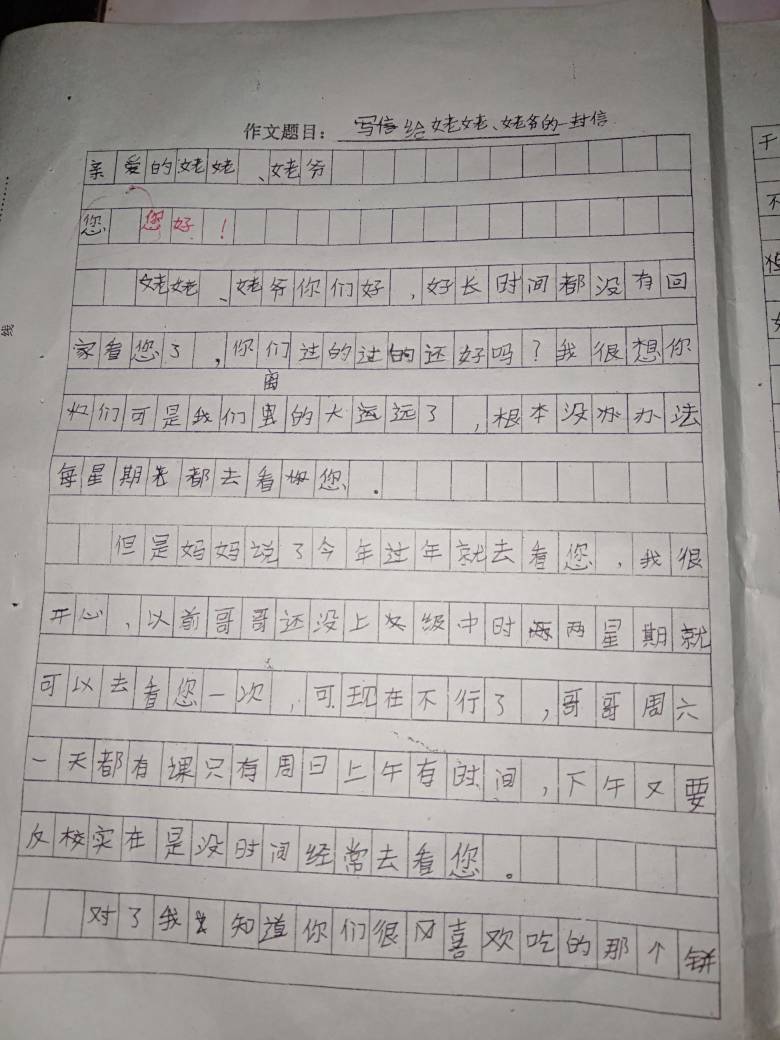 作文题目：写信给姥姥、姥爷的一封信
亲爱的姥姥、姥爷
您 您好！
姥姥、姥爷你们好，好长时间都没有回
家看您了，你们过的过的还好吗？我很想你
离
们可是我们的大远了，根本没办办法
每星期都去看您.
但是妈妈说了今年过年就去看您，我很
开心，以前哥哥还没上级中时两星期就
可以去看您一次，可现在不行了，哥哥周六
一天都有课只有周日上午有时间，下午又要
反校实在是没时间经常去看您。
对了我知道你们很喜欢吃的那个饼
线